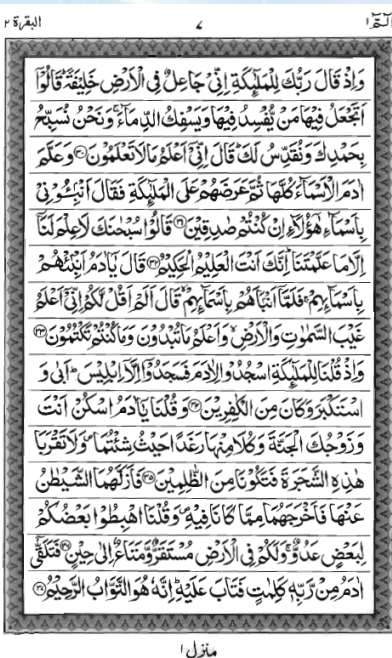 البقرة ٢
٧
الٓمّٓ ١
وَاِذْ قَالَ رَبُّكَ لِلْمَلٰٓئِكَةِ اِنِّيْ جَاعِلٌ فِي الْاَرْضِ خَلِيْفَةً ؕ قَالُوْۤا
اَتَجْعَلُ فِيْهَا مَنْ يُّفْسِدُ فِيْهَا وَيَسْفِكُ الدِّمَآءَ ۚ وَنَحْنُ نُسَبِّحُ
بِحَمْدِكَ وَنُقَدِّسُ لَكَ ؕ قَالَ اِنِّيْۤ اَعْلَمُ مَا لَا تَعْلَمُوْنَ ﴿٣٠﴾ وَعَلَّمَ
اٰدَمَ الْاَسْمَآءَ كُلَّهَا ثُمَّ عَرَضَهُمْ عَلَى الْمَلٰٓئِكَةِ فَقَالَ اَنْۢبِـُٔوْنِيْ
بِاَسْمَآءِ هٰۤؤُلَآءِ اِنْ كُنْتُمْ صٰدِقِيْنَ ﴿٣١﴾ قَالُوْا سُبْحٰنَكَ لَا عِلْمَ لَنَاۤ
اِلَّا مَا عَلَّمْتَنَا ؕ اِنَّكَ اَنْتَ الْعَلِيْمُ الْحَكِيْمُ ﴿٣٢﴾ قَالَ يٰۤاٰدَمُ اَنْۢبِئْهُمْ
بِاَسْمَآئِهِمْ ۚ فَلَمَّاۤ اَنْۢبَاَهُمْ بِاَسْمَآئِهِمْ ۙ قَالَ اَلَمْ اَقُلْ لَّكُمْ اِنِّيْۤ اَعْلَمُ
غَيْبَ السَّمٰوٰتِ وَالْاَرْضِ ۙ وَاَعْلَمُ مَا تُبْدُوْنَ وَمَا كُنْتُمْ تَكْتُمُوْنَ ﴿٣٣﴾
وَاِذْ قُلْنَا لِلْمَلٰٓئِكَةِ اسْجُدُوْا لِاٰدَمَ فَسَجَدُوْۤا اِلَّاۤ اِبْلِيْسَ ؕ اَبٰى وَ
اسْتَكْبَرَ وَكَانَ مِنَ الْكٰفِرِيْنَ ﴿٣٤﴾ وَقُلْنَا يٰۤاٰدَمُ اسْكُنْ اَنْتَ
وَزَوْجُكَ الْجَنَّةَ وَكُلَا مِنْهَا رَغَدًا حَيْثُ شِئْتُمَا ۪ وَلَا تَقْرَبَا
هٰذِهِ الشَّجَرَةَ فَتَكُوْنَا مِنَ الظّٰلِمِيْنَ ﴿٣٥﴾ فَاَزَلَّهُمَا الشَّيْطٰنُ
عَنْهَا فَاَخْرَجَهُمَا مِمَّا كَانَا فِيْهِ ۪ وَقُلْنَا اهْبِطُوْا بَعْضُكُمْ
لِبَعْضٍ عَدُوٌّ ۚ وَلَكُمْ فِي الْاَرْضِ مُسْتَقَرٌّ وَّمَتَاعٌ اِلٰى حِيْنٍ ﴿٣٦﴾ فَتَلَقّٰۤى
اٰدَمُ مِنْ رَّبِّهٖ كَلِمٰتٍ فَتَابَ عَلَيْهِ ؕ اِنَّهٗ هُوَ التَّوَّابُ الرَّحِيْمُ ﴿٣٧﴾
منزل ١